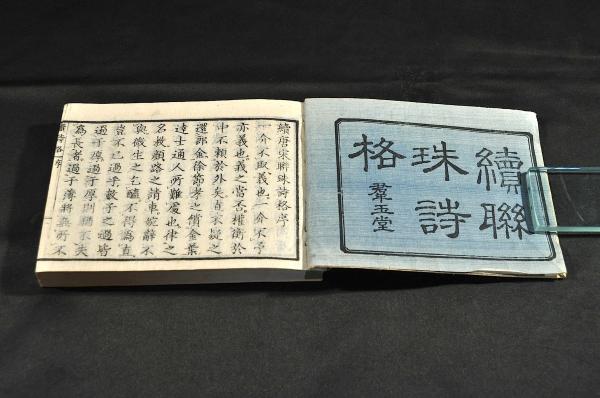 續聯
珠詩
格
羣玉堂
續唐宋聯珠詩格序
一介不取義也一介不予
亦義也義之當否權衡於
中不頼於外矣直不疑之
還郎金徐節孝之償金葉
達士通人所難處也律之
名教顏路之請車辭不
與微生之乞醯不得為直
豈不已過乎數子之過皆
過于厚過于厚則猶不失
為長者過于薄將無所不